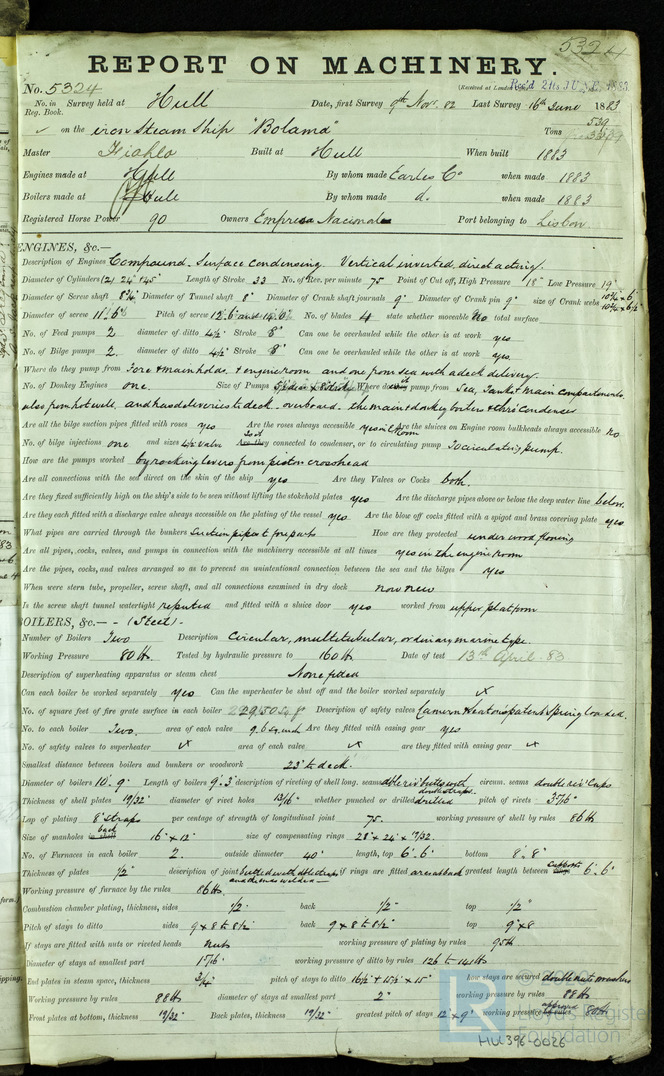 5324
REPORT ON MACHINERY.
No. 5324 (Received at London Rec'd 21st JUNE 1883
No. in Reg. Book. Survey held at Hull Date, first Survey 9th Nov. 82 Last Survey 16th June 1883
on the iron Steam Ship "Bolama" Tons 539
Master Built at Hull When built 1883
Engines made at Hull By whom made Earles Co when made 1883
Boilers made at Hull By whom made d. when made 1883
Registered Horse Power 90 Owners Empresa Nacional Port belonging to Lisbon.
ENGINES, &c.—
Description of Engines Compound. Surface condensing. Vertical inverted, direct acting.
Diameter of Cylinders (2) 24" & 45" Length of Stroke 33 No. of Rev. per minute 75 Point of Cut off, High Pressure 18" Low Pressure 19"
Diameter of Screw shaft 8¾" Diameter of Tunnel shaft 8" Diameter of Crank shaft journals 9" Diameter of Crank pin 9" size of Crank webs
Diameter of screw 11' 6" Pitch of screw 12'.6" No. of blades 4 state whether moveable No total surface
No. of Feed pumps 2 diameter of ditto 4½" Stroke 8" Can one be overhauled while the other is at work yes
No. of Bilge pumps 2. diameter of ditto 4½" Stroke 8" Can one be overhauled while the other is at work yes.
Where do they pump from Fore & main holds & engine room and one from sea with a deck delivery.
No. of Donkey Engines one. Size of Pumps Where do they pump from Sea, Tanks & Main compartments,
also from hotwell, and has deliveries to deck - overboard. The main & donkey boilers & the condenser
Are all the bilge suction pipes fitted with roses yes Are the roses always accessible yes Are the sluices on Engine room bulkheads always accessible no
No. of bilge injections one and sizes 4½ valve Are they connected to condenser, or to circulating pump To circulating pump.
How are the pumps worked by rocking levers from piston crosshead
Are all connections with the sea direct on the skin of the ship yes Are they Valves or Cocks both.
Are they fixed sufficiently high on the ship's side to be seen without lifting the stokehold plates yes Are the discharge pipes above or below the deep water line below.
Are they each fitted with a discharge valve always accessible on the plating of the vessel yes. Are the blow off cocks fitted with a spigot and brass covering plate yes
What pipes are carried through the bunkers Suction pipes to foreparts How are they protected under wood flooring
Are all pipes, cocks, valves, and pumps in connection with the machinery accessible at all times yes in the engine room
Are the pipes, cocks, and valves arranged so as to prevent an unintentional connection between the sea and the bilges yes
When were stern tube, propeller, screw shaft, and all connections examined in dry dock now new
Is the screw shaft tunnel watertight reputed and fitted with a sluice door yes worked from upper platform
BOILERS, &c.— - (Steel) -
Number of Boilers Two Description Circular, multitubular, ordinary marine type.
Working Pressure 80 lbs Tested by hydraulic pressure to 160 lbs Date of test 13th April. 83
Description of superheating apparatus or steam chest None fitted
Can each boiler be worked separately yes Can the superheater be shut off and the boiler worked separately
No. of square feet of fire grate surface in each boiler Description of safety valves Cameron & Heaton's patent Spring loaded.
No. to each boiler Two. area of each valve 9.6 sq. inch Are they fitted with easing gear yes
No. of safety valves to superheater area of each valve are they fitted with easing gear
Smallest distance between boilers and bunkers or woodwork 23" to deck.
Diameter of boilers 10'. 9" Length of boilers 9'. 3" description of riveting of shell long. seams dble riv. butts with double straps. circum. seams double riv. laps
Thickness of shell plates 19/32" diameter of rivet holes 13/16" whether punched or drilled drilled pitch of rivets 3 7/16"
Lap of plating 8" straps per centage of strength of longitudinal joint 75. working pressure of shell by rules 86 lbs
Size of manholes in shell back 16" x 12" size of compensating rings 28" x 24" x 19/32.
No. of Furnaces in each boiler 2. outside diameter 40" length, top 6'. 6" bottom 8'. 8"
Thickness of plates ½" description of joint butted with dble straps if rings are fitted greatest length between supports 6'. 6"
Working pressure of furnace by the rules 86 lbs.
Combustion chamber plating, thickness, sides ½" back ½" top ½"
Pitch of stays to ditto sides 9 x 8 to 8½" back 9 x 8 to 8½" top 9" x 8
If stays are fitted with nuts or riveted heads nuts working pressure of plating by rules 95 lbs
Diameter of stays at smallest part 1 7/16" working pressure of ditto by rules 126 to 141 lbs
End plates in steam space, thickness ¾" pitch of stays to ditto 16½" + 15½" x 15" how stays are secured double nuts & washers
Working pressure by rules 88 lbs diameter of stays at smallest part 2" working pressure by rules 88 lbs
Front plates at bottom, thickness 19/32" Back plates, thickness 19/32" greatest pitch of stays 12" x 9" working pressure by rules 80 lbs
HUL396-0026
LR
Foundation